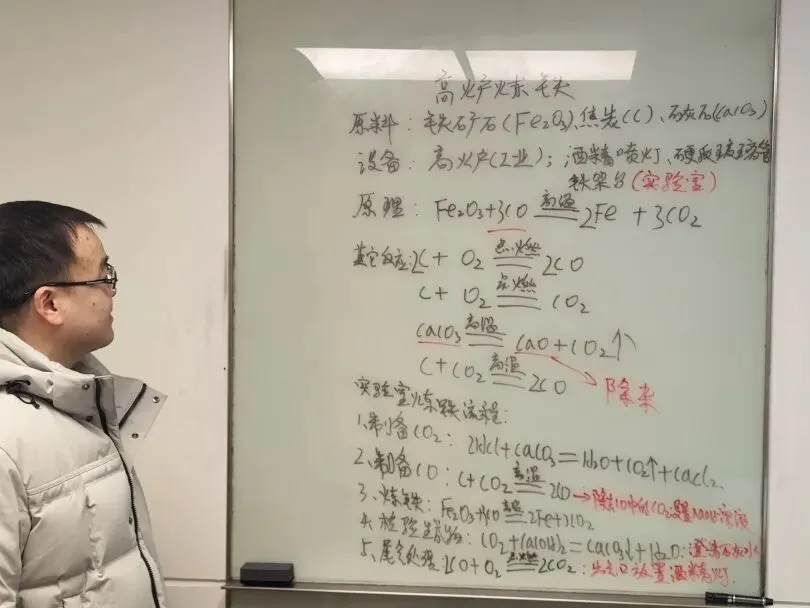 高炉炼铁
原料：铁矿石(Fe₂O₃)、焦炭(C)、石灰石(CaCO₃)
设备：高炉(工业)；酒精喷灯、硬质玻璃管
铁架台(实验室)
原理：Fe₂O₃+3CO 高温 2Fe+3CO₂
其它反应：2C+O₂ 点燃 2CO
C+O₂ 点燃 CO₂
CaCO₃ 高温 CaO+CO₂↑
C+CO₂ 高温 2CO
除杂
实验室炼铁流程：
1.制备CO₂：2HCl+CaCO₃=H₂O+CO₂↑+CaCl₂.
2.制备CO：C+CO₂ 高温 2CO→除去CO中的CO₂：设置NaOH溶液
3.炼铁：Fe₂O₃+3CO 高温 2Fe+3CO₂
4.检验生成物：CO₂+Ca(OH)₂=CaCO₃↓+H₂O：澄清石灰水
5.尾气处理：2CO+O₂ 点燃 2CO₂：出气口放置酒精灯.